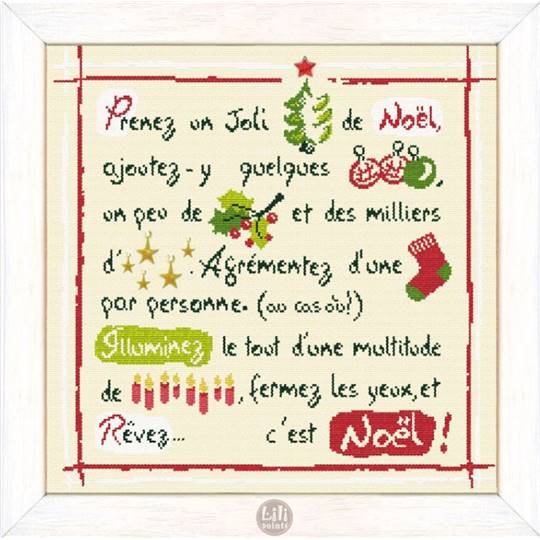 Prenez un Joli de Noël,
ajoutez-y quelques ,
un peu de et des milliers
d' . Agrémentez d'une
par personne. (au cas où!)
Illuminez le tout d'une multitude
de , fermez les yeux, et
Rêvez... c'est Noël !
Lili
points